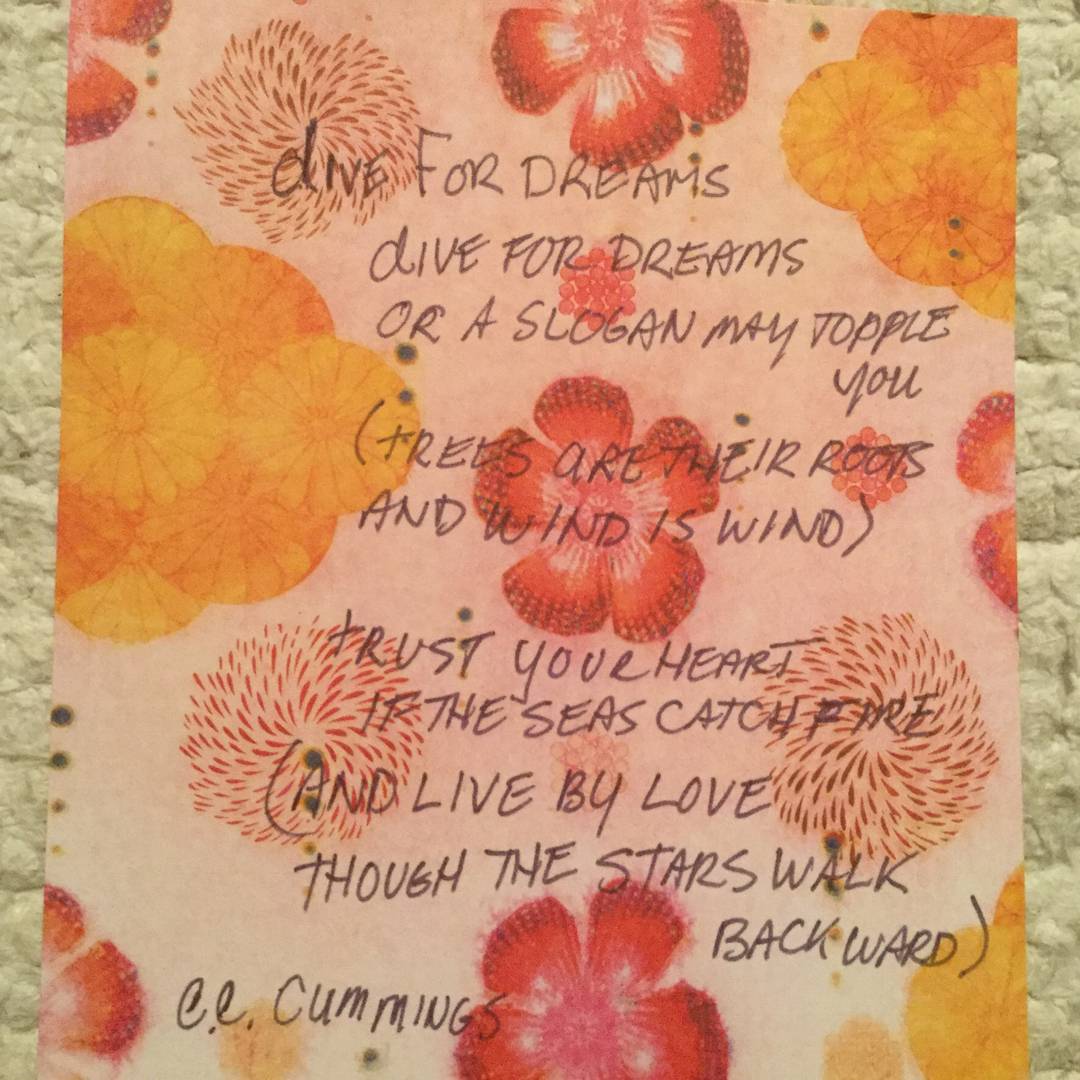 dIVE FOR DREAMS
dIVE FOR DREAMS
OR A SLOGAN MAY TOPPLE
YOU
(TREES ARE THEIR ROOTS
AND WIND IS WIND)
TRUST YOUR HEART
IF THE SEAS CATCH FIRE
(AND LIVE BY LOVE
THOUGH THE STARS WALK
BACKWARD)
e.e. CUMMINGS